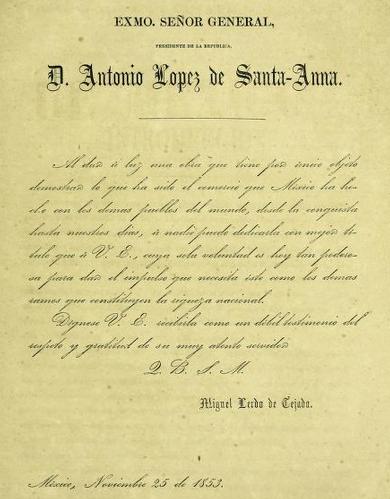 EXMO. SEÑOR GENERAL,
PRESIDENTE DE LA REPUBLICA,
D. Antonio Lopez de Santa-Anna.
Al dar á luz una obra que tiene por único objeto
demostrar lo que ha sido el comercio que México ha he-
cho con los demas pueblos del mundo, desde la conquista
hasta nuestros dias, á nadie puedo dedicarla con mejor tí-
tulo que á V. E., cuya sola voluntad es hoy tan podero-
sa para dar el impulso que necesita éste como los demas
ramos que constituyen la riqueza nacional.
Dígnese V. E. recibirla como un debil testimonio del
respeto y gratitud de su muy atento servidor
Q. B. S. M.
Miguel Lerdo de Tejada.
México, Noviembre 25 de 1853.